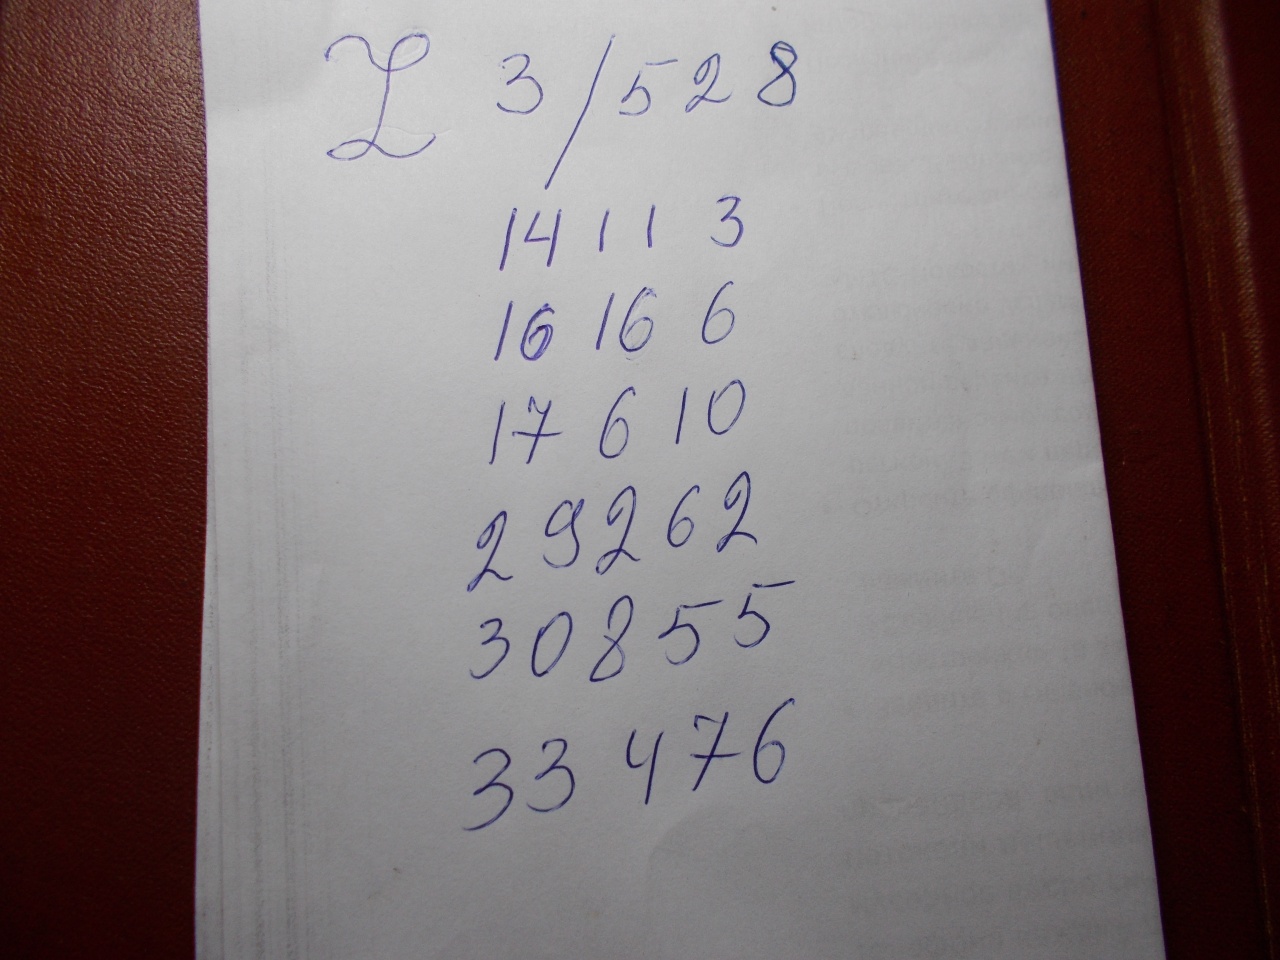 Z 3/528
14 11 3
16 16 6
17 6 10
29262
30855
33 476